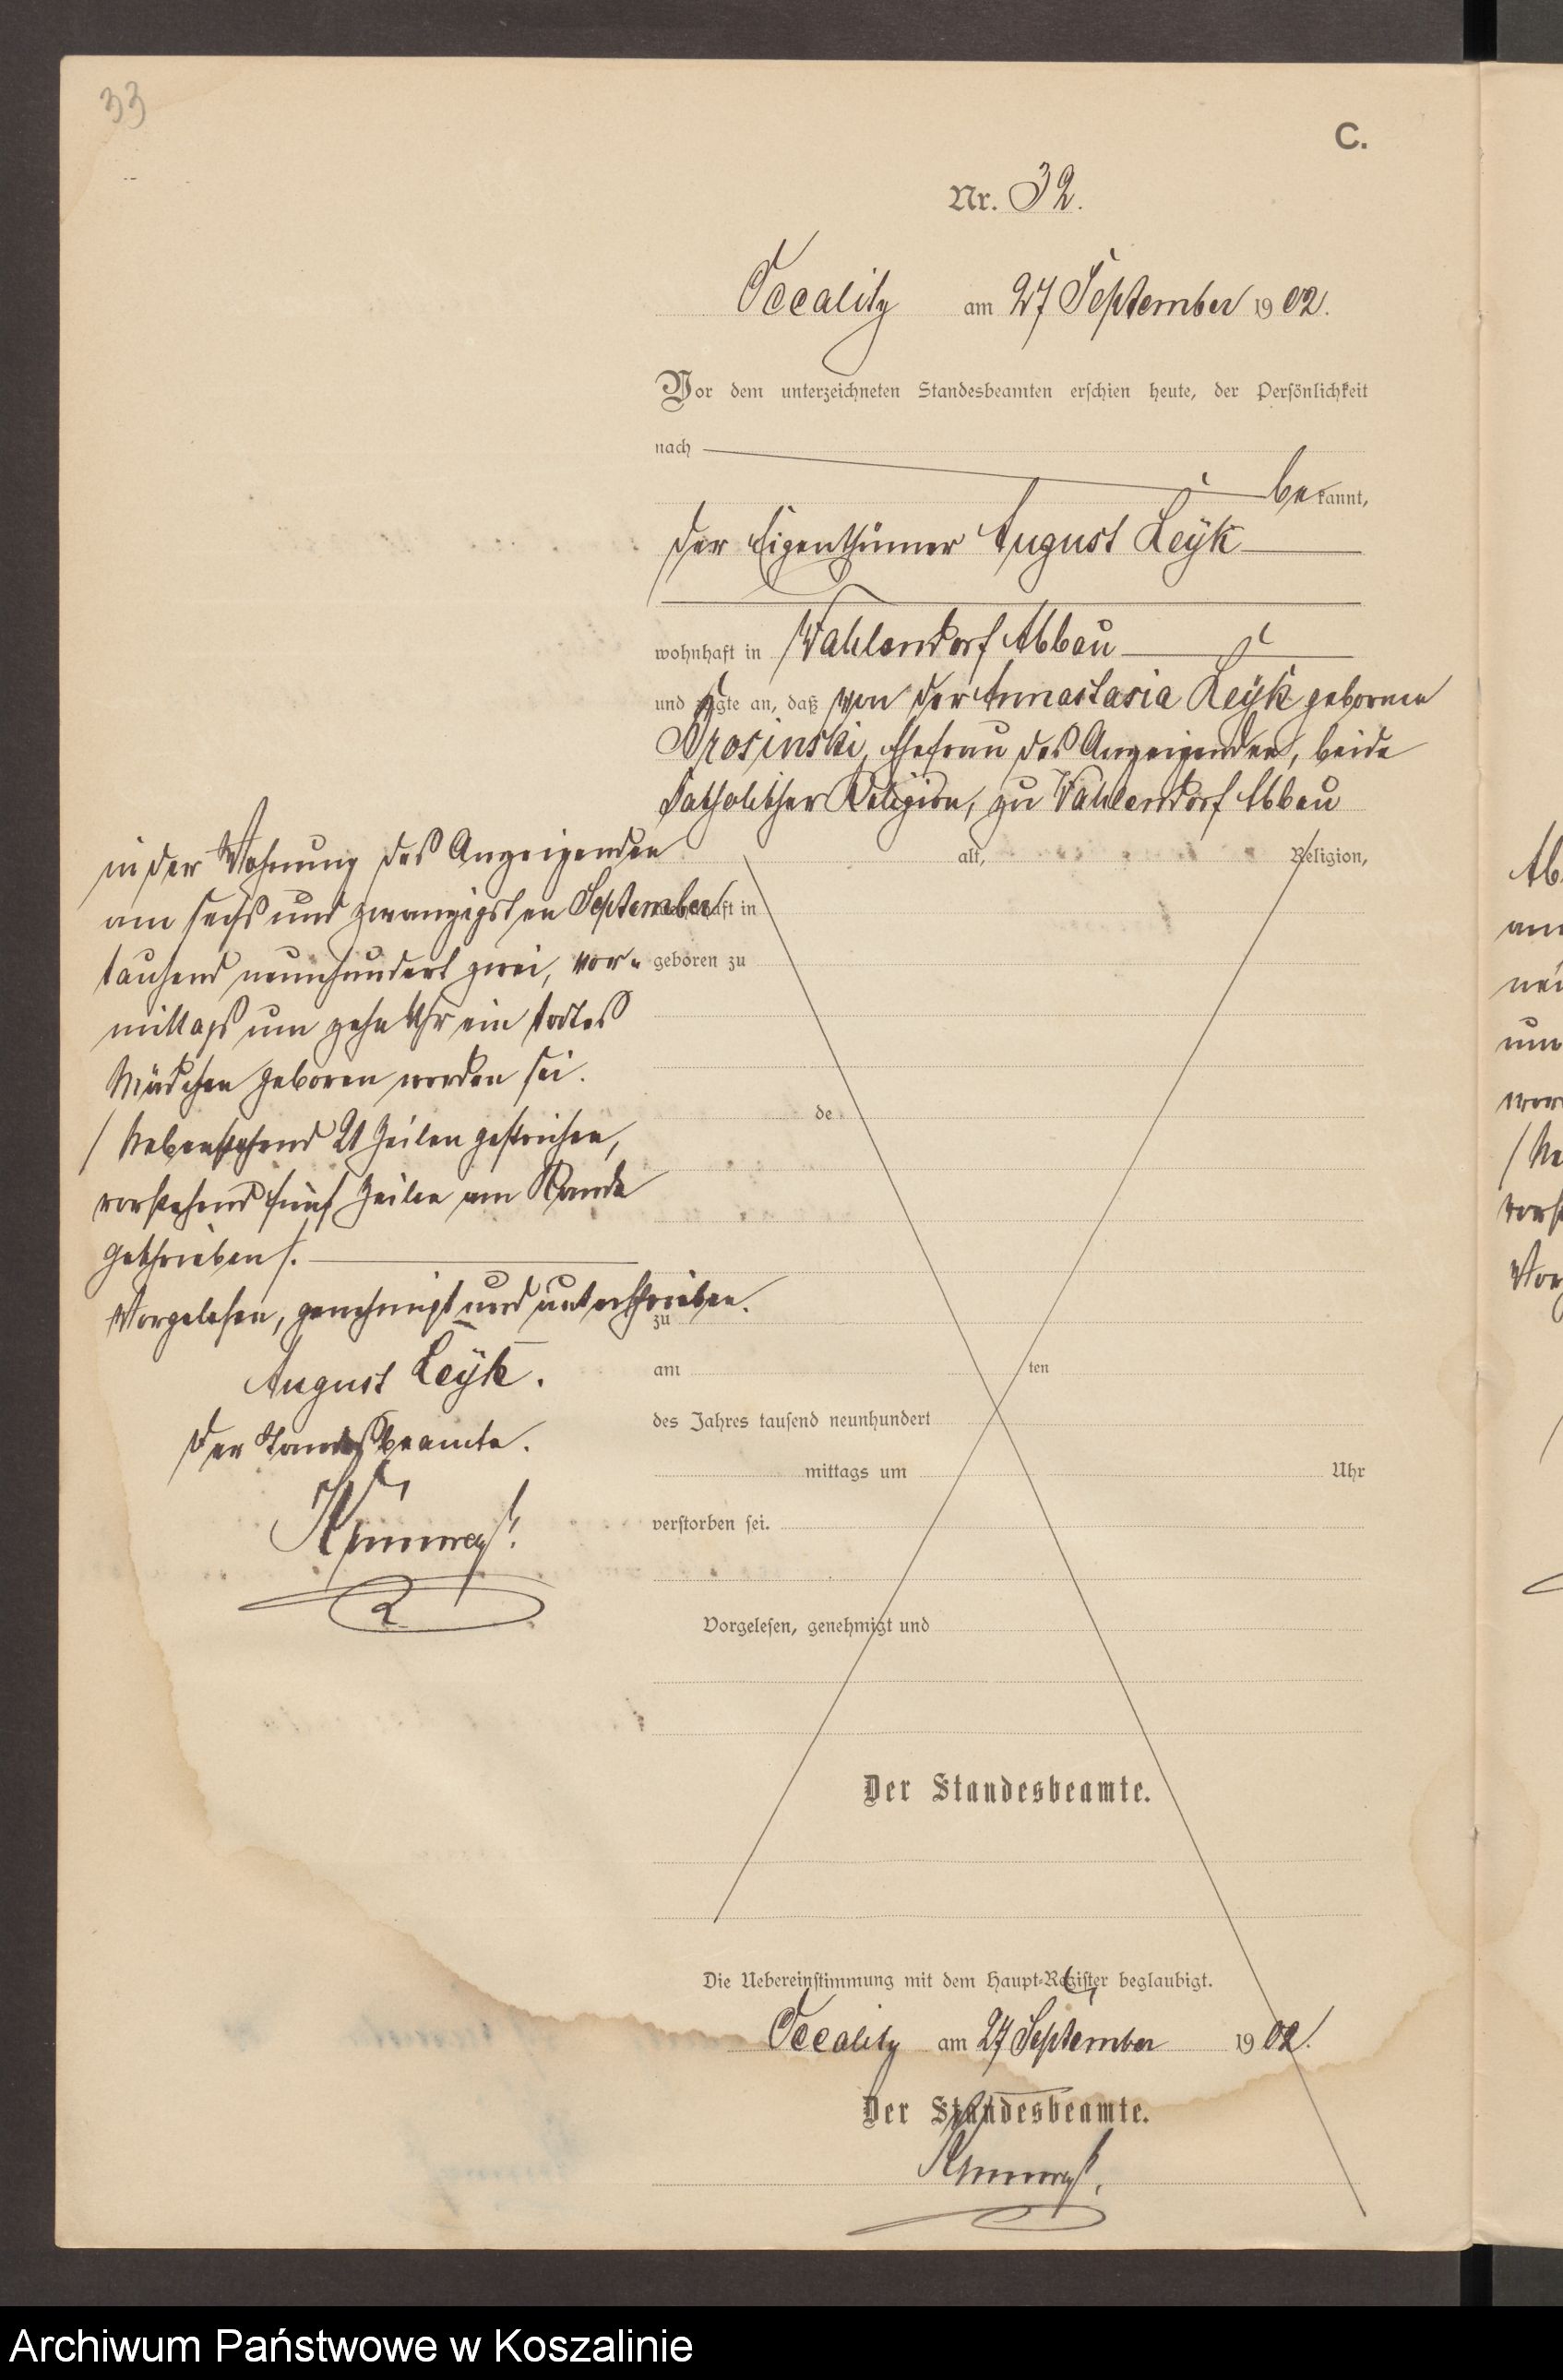 33
C.
Nr. 32.
Oecalitz am 27 September 1902.
Vor dem unterzeichneten Standesbeamten erschien heute, der Persönlichkeit
nach
bekannt,
der Eigenthümer August Leÿk
wohnhaft in Wahlendorf Abbau
und zeigte an, daß von der Annastasia Leÿk geborene
Brosinski, Ehefrau des Anzeigenden, beide
katholischer Religion, zu Wahlendorf Abbau
in der Wohnung des Anzeigenden
am sechs und zwanzigsten September
tausend neunhundert zwei, vor-
mittags um zehn Uhr ein todtes
Mädchen geboren worden sei.
/ Nebenstehend 21 Zeilen gestrichen,
vorstehend fünf Zeilen am Rande
geschrieben /.
Vorgelesen, genehmigt und unterschrieben.
August Leÿk.
Der Standesbeamte.
alt, Religion,
wohnhaft in
geboren zu
de
zu
am ten
des Jahres tausend neunhundert
mittags um Uhr
verstorben sei.
Vorgelesen, genehmigt und
Der Standesbeamte.
Die Uebereinstimmung mit dem Haupt-Register beglaubigt.
Oecalitz am 27 September 1902.
Der Standesbeamte.
Archiwum Państwowe w Koszalinie